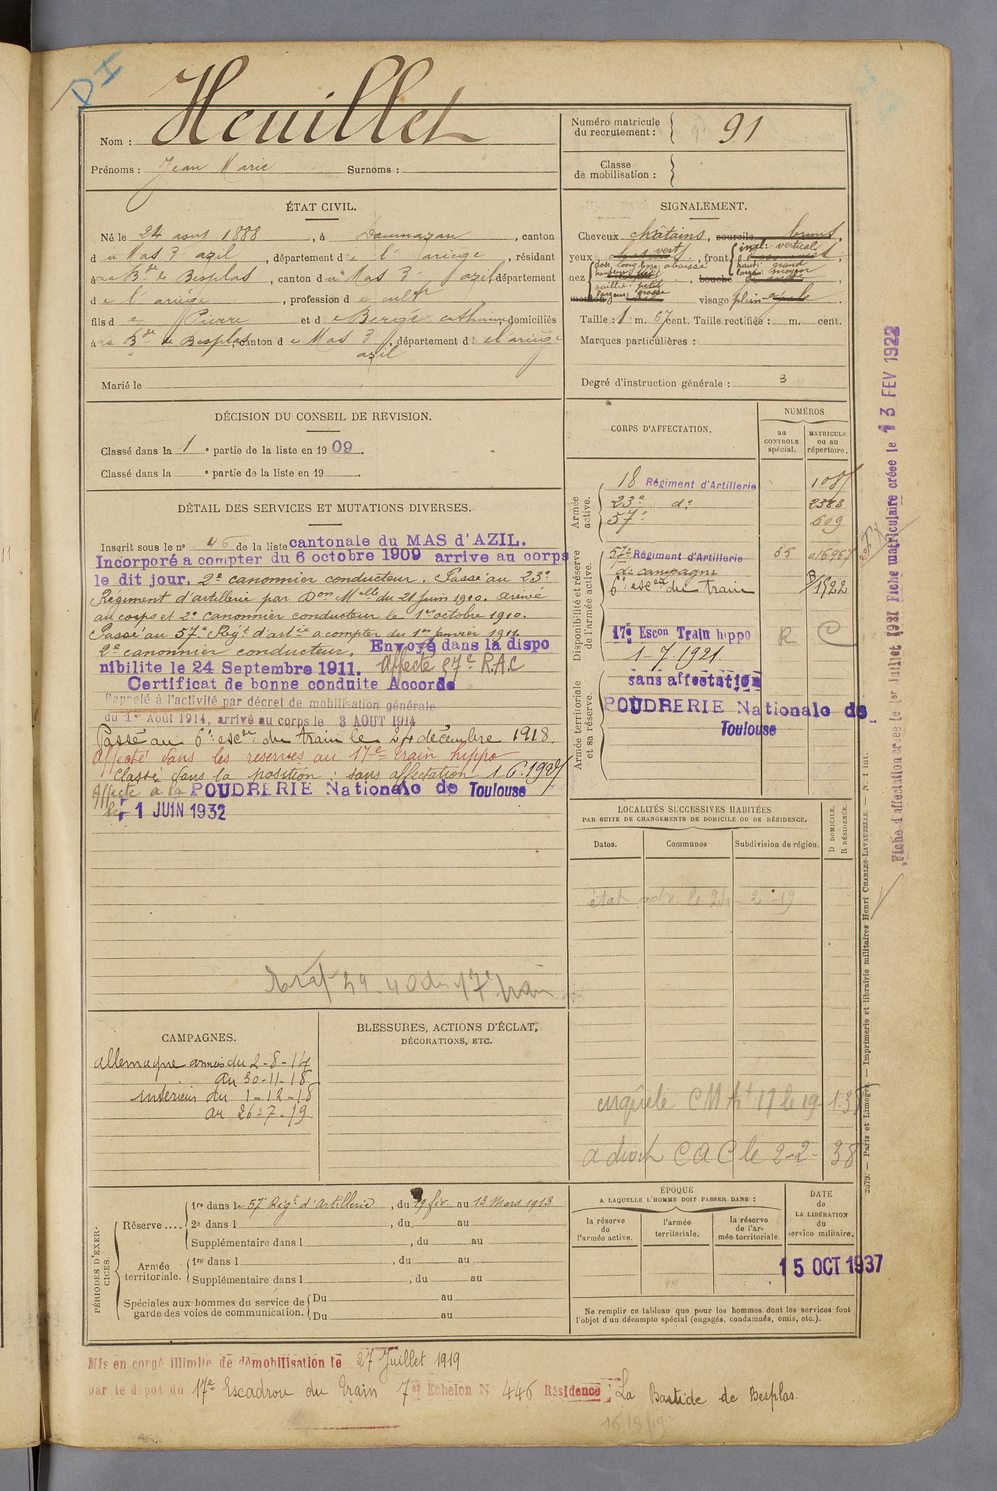 Nom : Heuillet
Prénoms : Jean Marie Surnoms :
Numéro matricule du recrutement : 91
Classe de mobilisation :
ÉTAT CIVIL.
Né le 24 aout 1888, à Daumazan, canton
du Mas d'azil, département de l'ariège, résidant
à La Bde de Besplas, canton du Mas d'azil, département
de l'ariège, profession de cultr
fils de Pierre et de Bergé catherine, domiciliés
à La Bde de Besplas, canton de Mas d'azil, département de l'ariège
Marié le
SIGNALEMENT.
Cheveux châtains, sourcils bruns,
yeux vert, front incl: verticale haut: grand larg: moyen
nez dos, long. base abaissée saillie: petit largeur: grosse, bouche
menton visage plein ovale
Taille : 1 m. 67 cent. Taille rectifiée : m. cent.
Marques particulières :
Degré d'instruction générale : 3
DÉCISION DU CONSEIL DE REVISION.
Classé dans la 1e partie de la liste en 1909.
Classé dans la e partie de la liste en 19
DÉTAIL DES SERVICES ET MUTATIONS DIVERSES.
Inscrit sous le n° 46 de la liste cantonale du MAS d'AZIL.
Incorporé a compter du 6 octobre 1909 arrive au corps
le dit jour. 2e canonnier conducteur. Passé au 23e
Régiment d'artillerie par Don Mlle du 21 juin 1910. arrivé
au corps et 2e canonnier conducteur le 1er octobre 1910.
Passé au 57e Régt d'artie a compter du 1er janvier 1911.
2e canonnier conducteur. Envoyé dans la dispo
nibilite le 24 Septembre 1911. Affecté 57e R.A.C
Certificat de bonne conduite Accordé
Rappelé à l'activité par décret de mobilisation générale
du 1er Août 1914, arrivé au corps le 3 AOUT 1914
Passé au 6e escon du train le 24 décembre 1918.
Affecté dans les reserves au 17e train hippo
Classé dans la position : sans affectation 1.6.1927
Affecté à la POUDRERIE Nationale de Toulouse
le 1 JUIN 1932
CORPS D'AFFECTATION.
NUMÉROS
au CONTROLE spécial.
MATRICULE ou au répertoire.
Armée active.
18 Régiment d'Artillerie
23e do 2383
57e 609
Disponibilité et réserve de l'armée active.
57e Régiment d'Artillerie
de campagne
6e escon du train 1722
17e Escon Train hippo R C
1-7-1921
Armée territoriale et sa réserve.
sans affectation
POUDRERIE Nationale de
Toulouse
LOCALITÉS SUCCESSIVES HABITÉES
PAR SUITE DE CHANGEMENTS DE DOMICILE OU DE RÉSIDENCE.
Dates. Communes Subdivision de région. D DOMICILE. R RÉSIDENCE.
enquête C M 17 le 19 1-38
C A C le 2-2- 38
CAMPAGNES.
allemagne armées du 2-8-14
au 30-11-18
intérieur du 1-12-18
au 26-7-19
BLESSURES, ACTIONS D'ÉCLAT,
DÉCORATIONS, ETC.
PÉRIODES D'EXERCICES.
Réserve.... 1re dans le 57 Régt d'Artillerie, du 19 fév. au 13 Mars 1913
2e dans l , du au
Supplémentaire dans l , du au
Armée territoriale. 1re dans l , du au
Supplémentaire dans l , du au
Spéciales aux hommes du service de garde des voies de communication. Du au
Du au
ÉPOQUE
A LAQUELLE L'HOMME DOIT PASSER DANS :
la réserve de l'armée active.
l'armée territoriale.
la réserve de l'armée territoriale.
DATE DE LA LIBÉRATION du service militaire.
15 OCT 1937
Ne remplir ce tableau que pour les hommes dont les services font
l'objet d'un décompte spécial (engagés, condamnés, omis, etc.).
Mis en congé illimité de démobilisation le 27 Juillet 1919
par le dépôt du 17e Escadron du Train 7e Echelon N 446 Résidence : La Bastide de Besplas.
Fiche d'affectation créée le 1er Juillet 1921 Fiche matriculaire créée le 13 FEV 1922
Paris et Limoges. — Imprimerie et librairie militaires Henri CHARLES-LAVAUZELLE. — N. 1